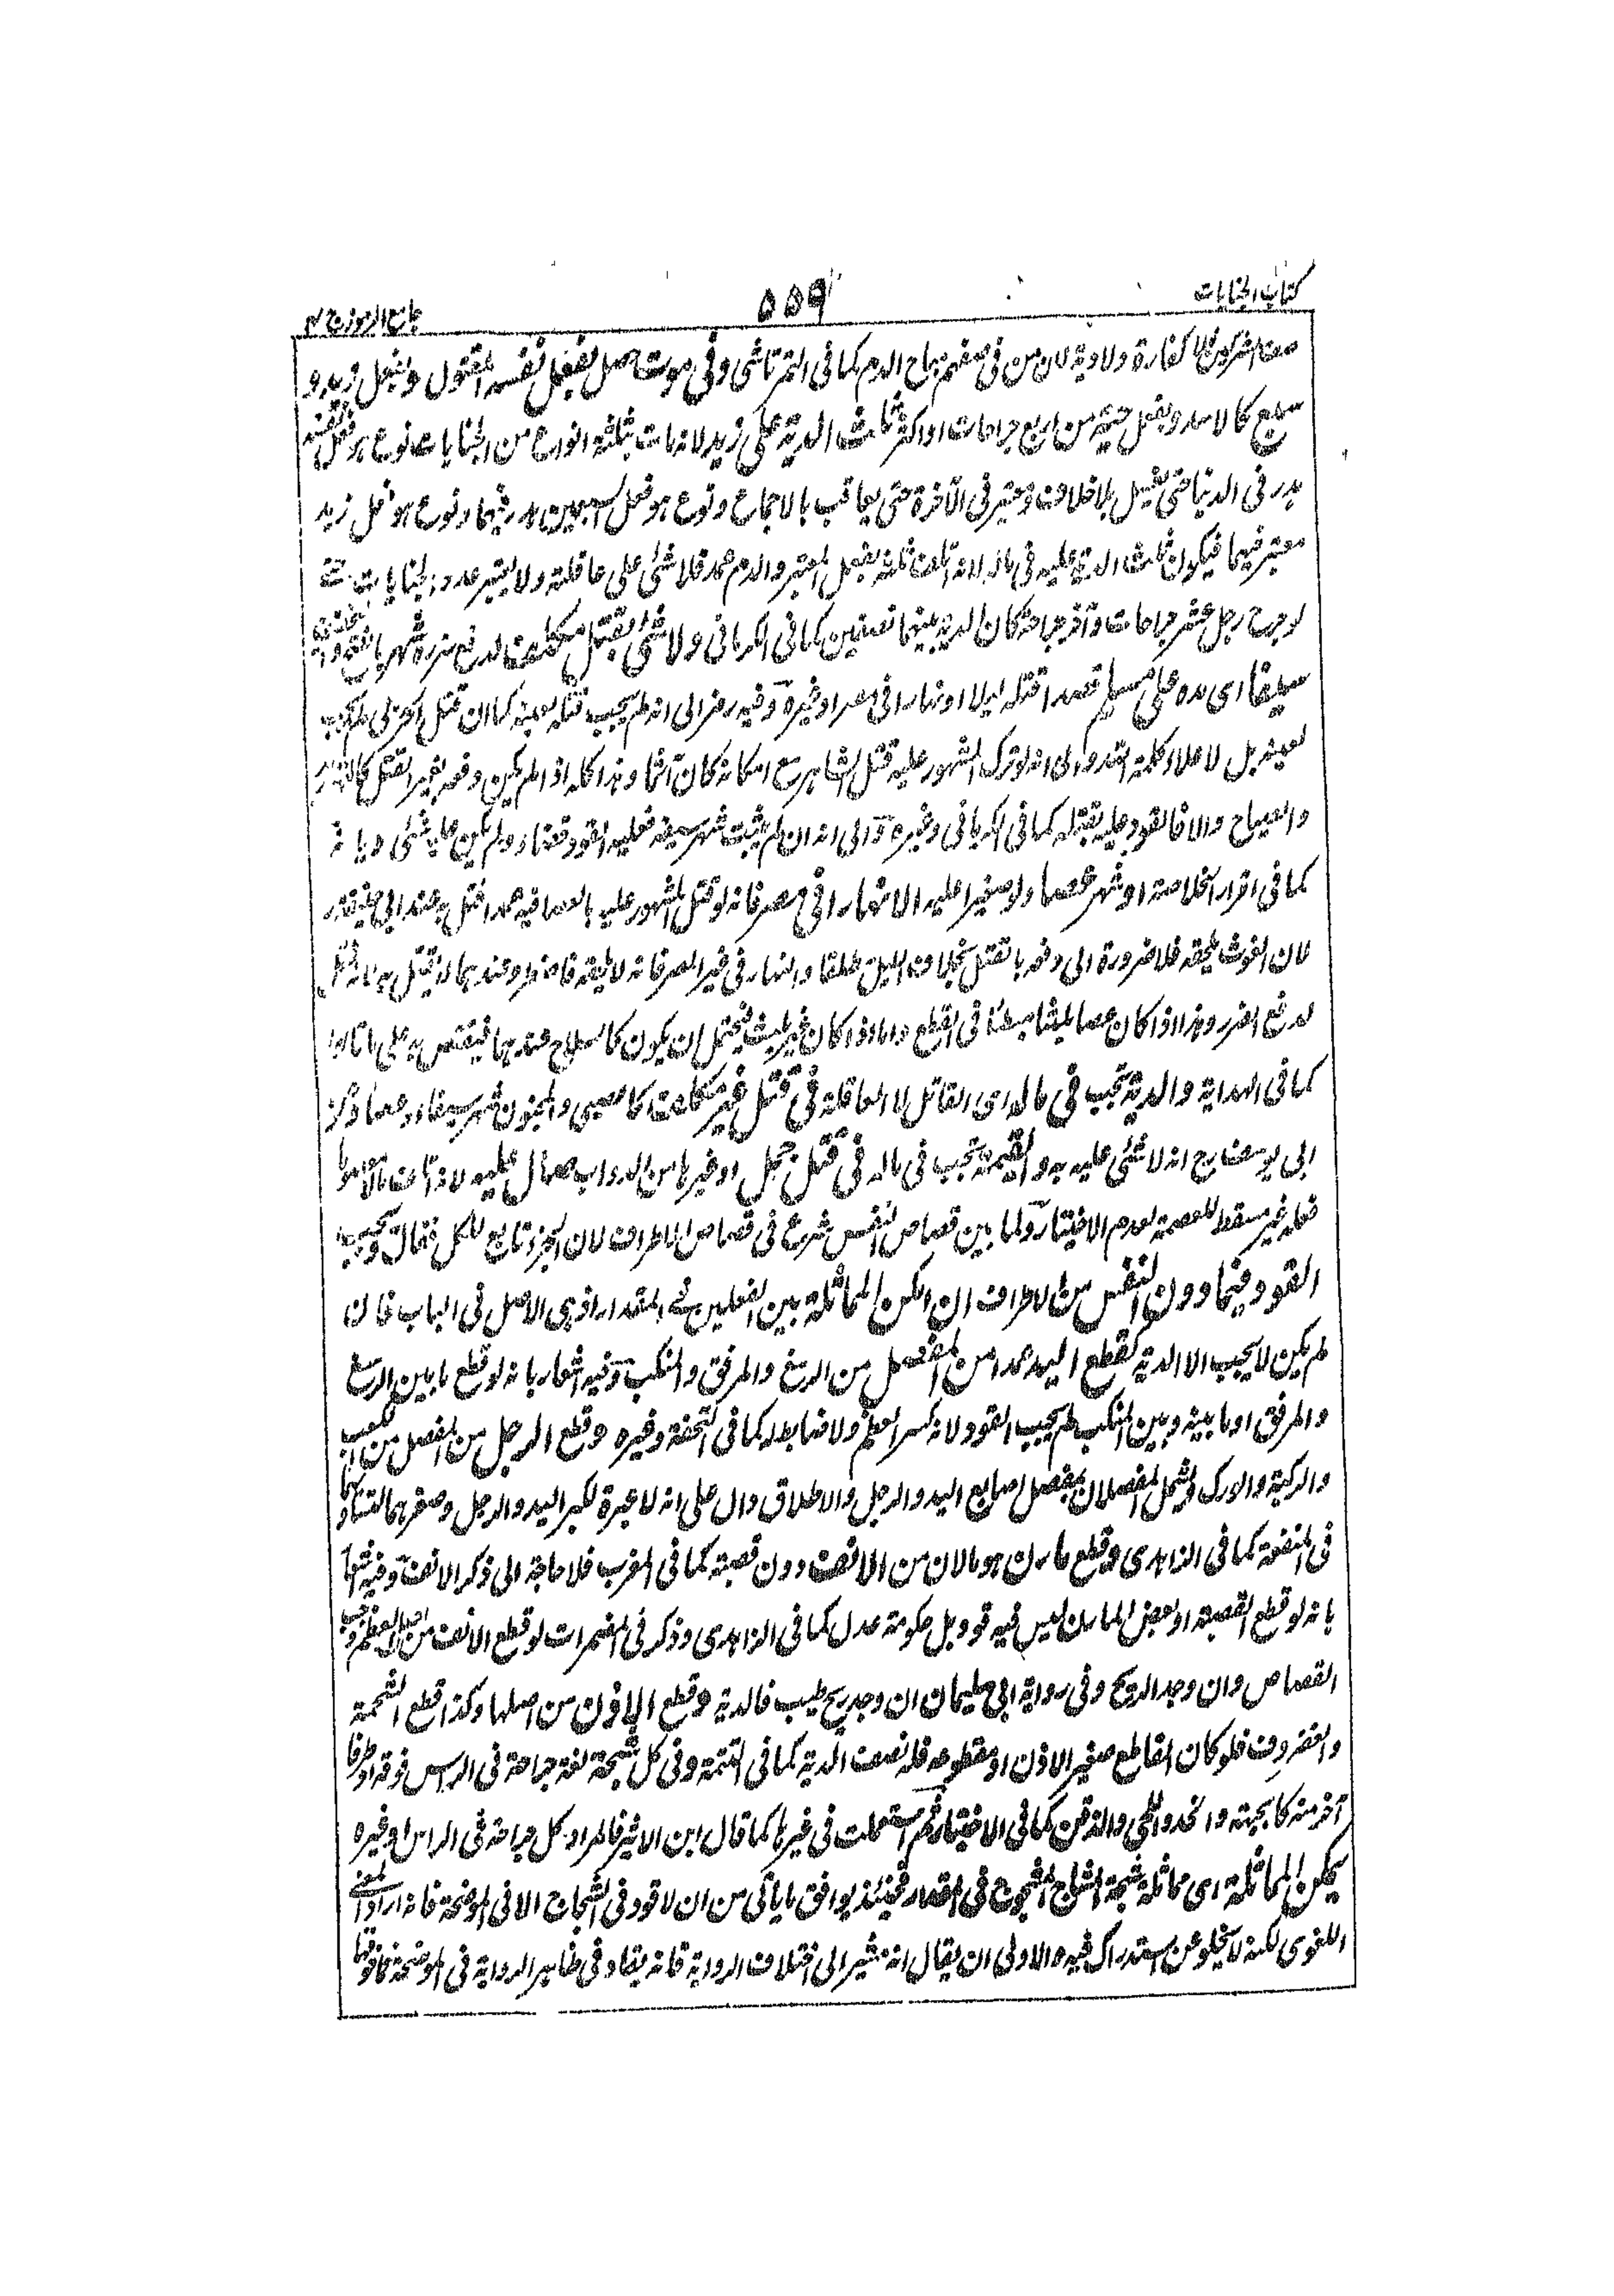 كتاب الجنايات
٥٥٩
جامع الرموز ج ٢
صف المشركين فلا كفارة ولا دية لان من فى صفهم مباح الدم كما فى التمرتاشى وفى موت حصل بفعل نفسه المقتول وبفعل زيد و
سبع كالاسد وبفعل حية من اربع جراحات او اكثر ثلث الدية على زيد لانه مات بثلثة انواع من الجنايات نوع هو فعل نفسه
هدر فى الدنيا حتى يغسل بلا خلاف ومعتبر فى الآخرة حتى يعاقب بالاجماع ونوع هو فعل السبعين هدر فيهما ونوع هو فعل زيد
معتبر فيهما فيكون ثلث الدية عليه فى ماله لانه اتلف ثلثه بفعل المعتبر والدم عمد فلا شئ على عاقلته ولا يعتبر عدد الجنايات حتى
لو جرح رجل عشر جراحات وآخر جراحة كان الدية بينهما نصفين كما فى الكرمانى ولا شئ بقتل مكلف لدفع ضرره شهر
سيفا اى مده على مسلم قصدا قتله ليلا او نهارا فى مصر او غيره وفيه رمز الى انه لم يجب قتله لعينه كما ان قتل الحربى لم يجب
لعينه بل لاعلاء كلمة الله والى انه لو ترك المشهور عليه قتل الشاهر مع امكانه كان آثما وهذا كله اذا لم يمكن دفعه بغير القتل
والصياح والا فالقود عليه بقتله كما فى الكرمانى وغيره والى انه ان لم يثبت شهر سيفه فعليه القود قضاء ولم يكن عليه شئ ديانة
كما فى اقرار الخلاصة او شهر عصا ولو صغيرا عليه الا نهارا فى مصر فانه لو قتل المشهور عليه بالعصا فيه عمدا قتل به عند ابى حنيفة
لان الغوث يلحقه فلا ضرورة الى دفعه بالقتل بخلاف الليل مطلقا والنهار فى غير المصر فانه لا يلحقه وعندهما لا يقتل به
لدفع الضرر وهذا اذا كان عصا يلبث مبطئا فى القطع واما اذا كان غير يلبث فيحتمل ان يكون كالسلاح عندهما فيقتص به على ما قالوا
كما فى الهداية والدية تجب فى ماله اى القاتل لا العاقلة فى قتل غير مكلف كالصبى والمجنون شهر سيفا او عصا وذكر
ابى يوسف رح انه لا شئ عليه به والقيمة تجب فى ماله فى قتل جمل او غيرها من الدواب صال عليه لانه اتلف مالا معصوما
فعله غير مسقط للعصمة لعدم الاختيار ولما بين قصاص النفس شرع فى قصاص الاطراف لان الجزء تابع للكل فقال ويجب
القود فيما دون النفس من الاطراف ان امكن المماثلة بين الفعلين فى المقدار اذ هى الاصل فى الباب فان
لم يكن لا يجب الا الدية كقطع اليد عمدا من المفصل من الرسغ والمرفق والمنكب وفيه اشعار بانه لو قطع ما بين الرسغ
والمرفق او ما بينه وبين المنكب لم يجب القود لانه كسر العظم ولا ضابط له كما فى التحفة وغيره وقطع الرجل من المفصل من الكعب
والركبة والورك ويشمل المفصلان بمفصل اصابع اليد والرجل والاطلاق دال على انه لا عبرة لكبر اليد والرجل وصغرهما لتساويهما
فى المنفعة كما فى الزاهدى وقطع مارن هو مالان من الانف دون قصبته كما فى المغرب فلا حاجة الى ذكر الانف وفيه اشعار
بانه لو قطع القصبة او بعض المارن ليس فيه قود بل حكومة عدل كما فى الزاهدى وذكر فى المضمرات لو قطع الانف من اصل العظم وجب
القصاص وان وجد الريح وفى رواية ابى سليمان ان وجد ريح طيب فالدية وقطع الاذن من اصلها وكذا قطع الشحمة
والغضروف فلو كان القاطع صغير الاذن او مقطوعه فله نصف الدية كما فى التتمة وفى كل شجة لغة جراحة فى الراس فوقه او طرفا
آخر منه كالجبهة والخد واللحى والذقن كما فى الاختيار ثم استعملت فى غيرها كما قال ابن الاثير فالمراد كل جراحة فى الراس او غيره
يمكن المماثلة اى مماثلة شجة الشاج المشجوج فى المقدار فحينئذ يوافق ما يأتى من ان لا قود فى الشجاج الا فى الموضحة فانه اراد المعنى
اللغوى لكنه لا يخلو عن استدراك فيه والاولى ان يقال انه تشير الى اختلاف الرواية فانه يقاد فى ظاهر الرواية فى الموضحة فما فوقها